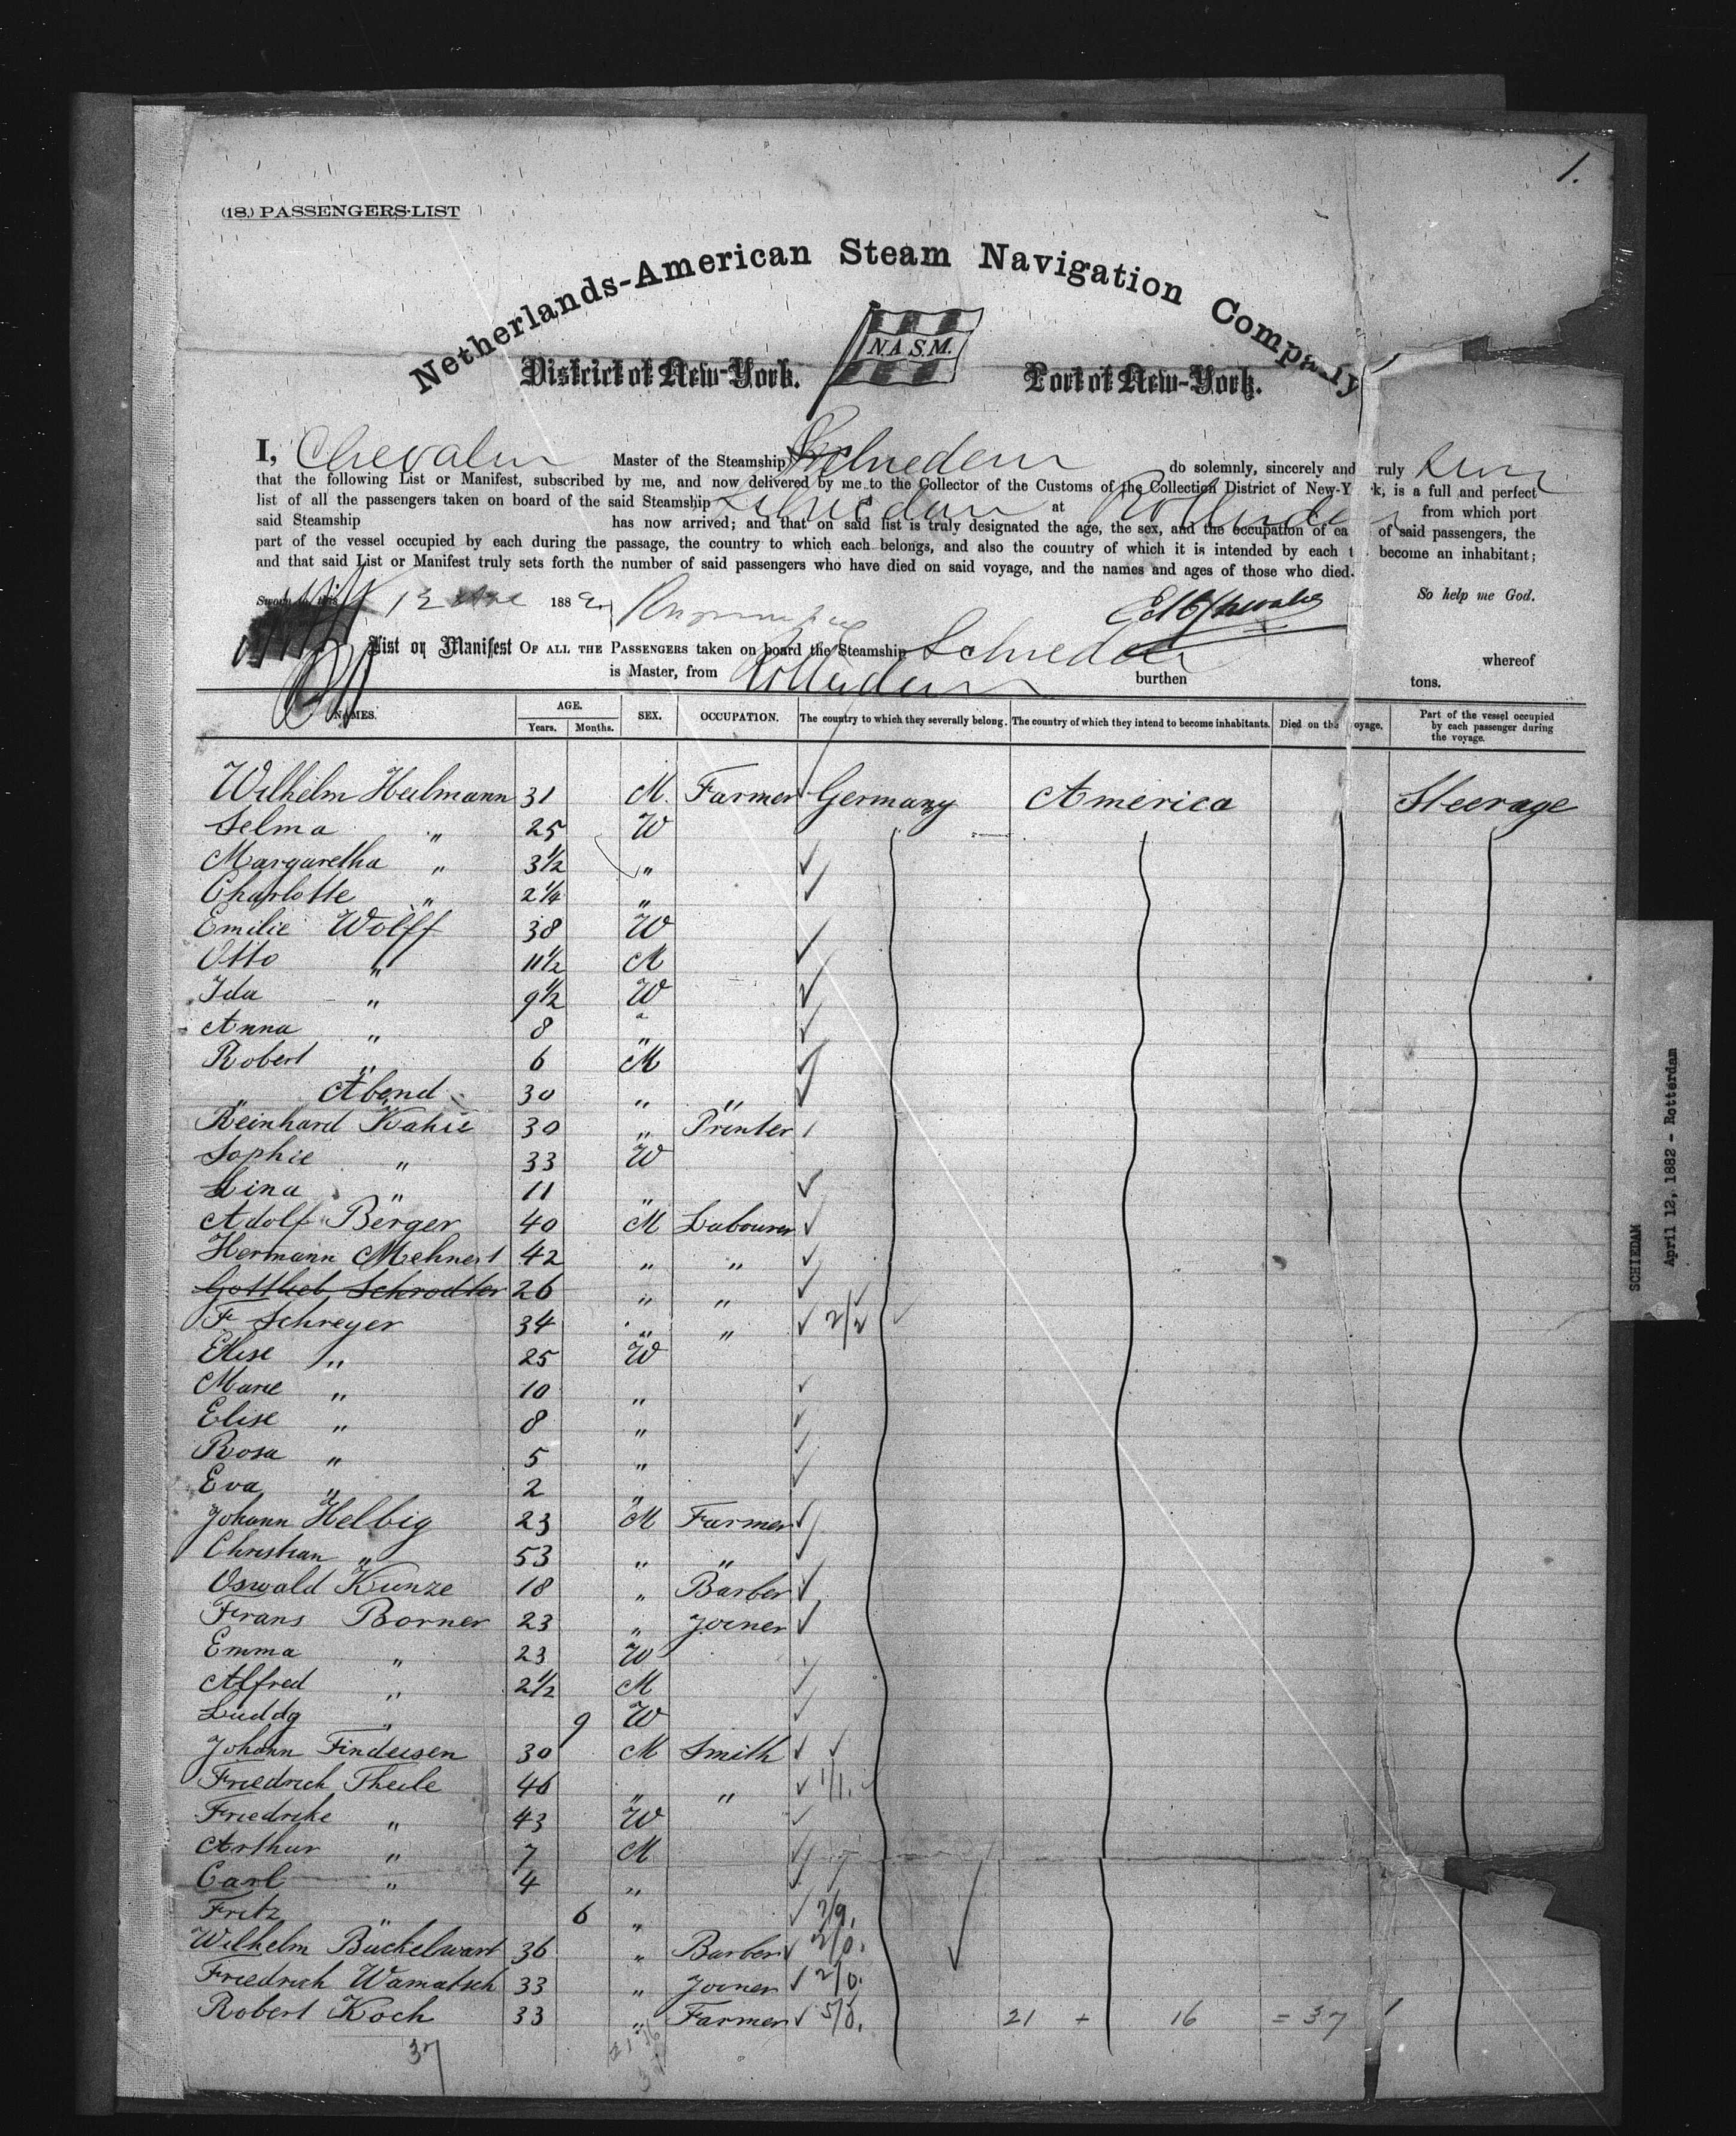 1.
(18.) PASSENGERS-LIST
Netherlands-American Steam Navigation Company
N.A.S.M.
District of New-York. Port of New-York.
I, Chevalier Master of the Steamship Schiedam do solemnly, sincerely and truly
that the following List or Manifest, subscribed by me, and now delivered by me to the Collector of the Customs of the Collection District of New-Y k, is a full and perfect
list of all the passengers taken on board of the said Steamship Schiedam at Rotterdam from which port
said Steamship has now arrived; and that on said list is truly designated the age, the sex, and the occupation of ea of said passengers, the
part of the vessel occupied by each during the passage, the country to which each belongs, and also the country of which it is intended by each t become an inhabitant;
and that said List or Manifest truly sets forth the number of said passengers who have died on said voyage, and the names and ages of those who died.
So help me God.
Sworn to this 12 1882
List or Manifest OF ALL THE PASSENGERS taken on board the Steamship Schiedam whereof
is Master, from Rotterdam burthen tons.
NAMES. AGE. Years. Months. SEX. OCCUPATION. The country to which they severally belong. The country of which they intend to become inhabitants. Died on the voyage. Part of the vessel occupied by each passenger during the voyage.
Wilhelm Heilmann 31 M. Farmer Germany America Steerage
Selma " 25 W
Margaretha " 3½ "
Charlotte " 2¼ "
Emilie Wolff 38 W
Otto " 11½ M
Ida " 9½ W
Anna " 8 "
Robert " 6 M
" Abend 30 " "
Reinhard Kahis 30 " Printer
Sophie " 33 W
Lina " 11 "
Adolf Berger 40 M Labourer
Hermann Mehnert 42 " "
Gottlieb Schrodter 26 " "
F Schreyer 34 " " 2/2
Elise " 25 W
Marie " 10 "
Elise " 8 "
Rosa " 5 "
Eva " 2 "
Johann Helbig 23 M Farmer
Christian " 53 " "
Oswald Kunze 18 " Barber
Frans Borner 23 " Joiner
Emma " 23 W
Alfred " 2½ M
Luddg " 9 W
Johann Findeisen 30 M Smith
Friedrich Theile 46 " " 1/1.
Friedrike " 43 W
Arthur " 7 M
Carl " 4 "
Fritz " 6 "
Wilhelm Bückelwart 36 " Barber 2/0.
Friedrich Wamatsch 33 " Joiner 2/0.
Robert Koch 33 " Farmer 5/0. 21 + 16 = 37
37
SCHIEDAM
April 12, 1882 - Rotterdam